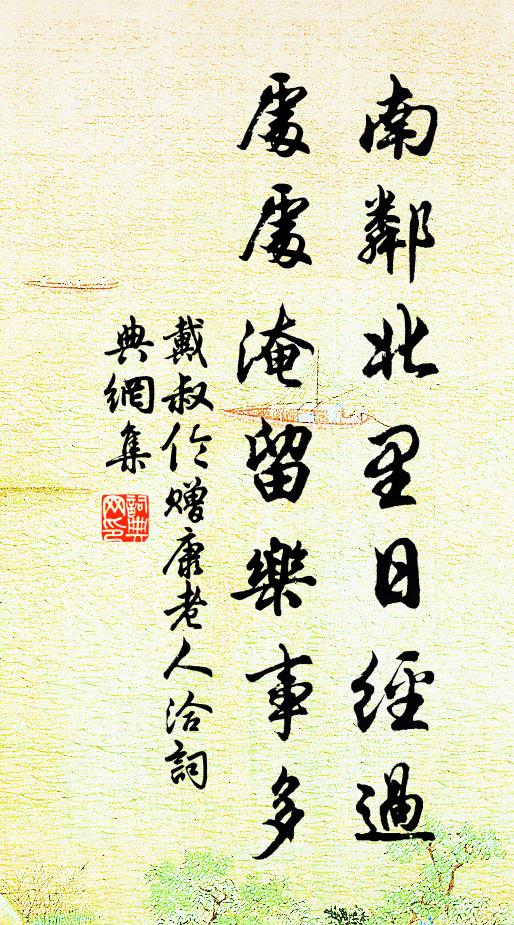 南鄰北里日經過
處處淹留樂事多
戴叔伦贈康老人洽詞
典網集
詞典
网印